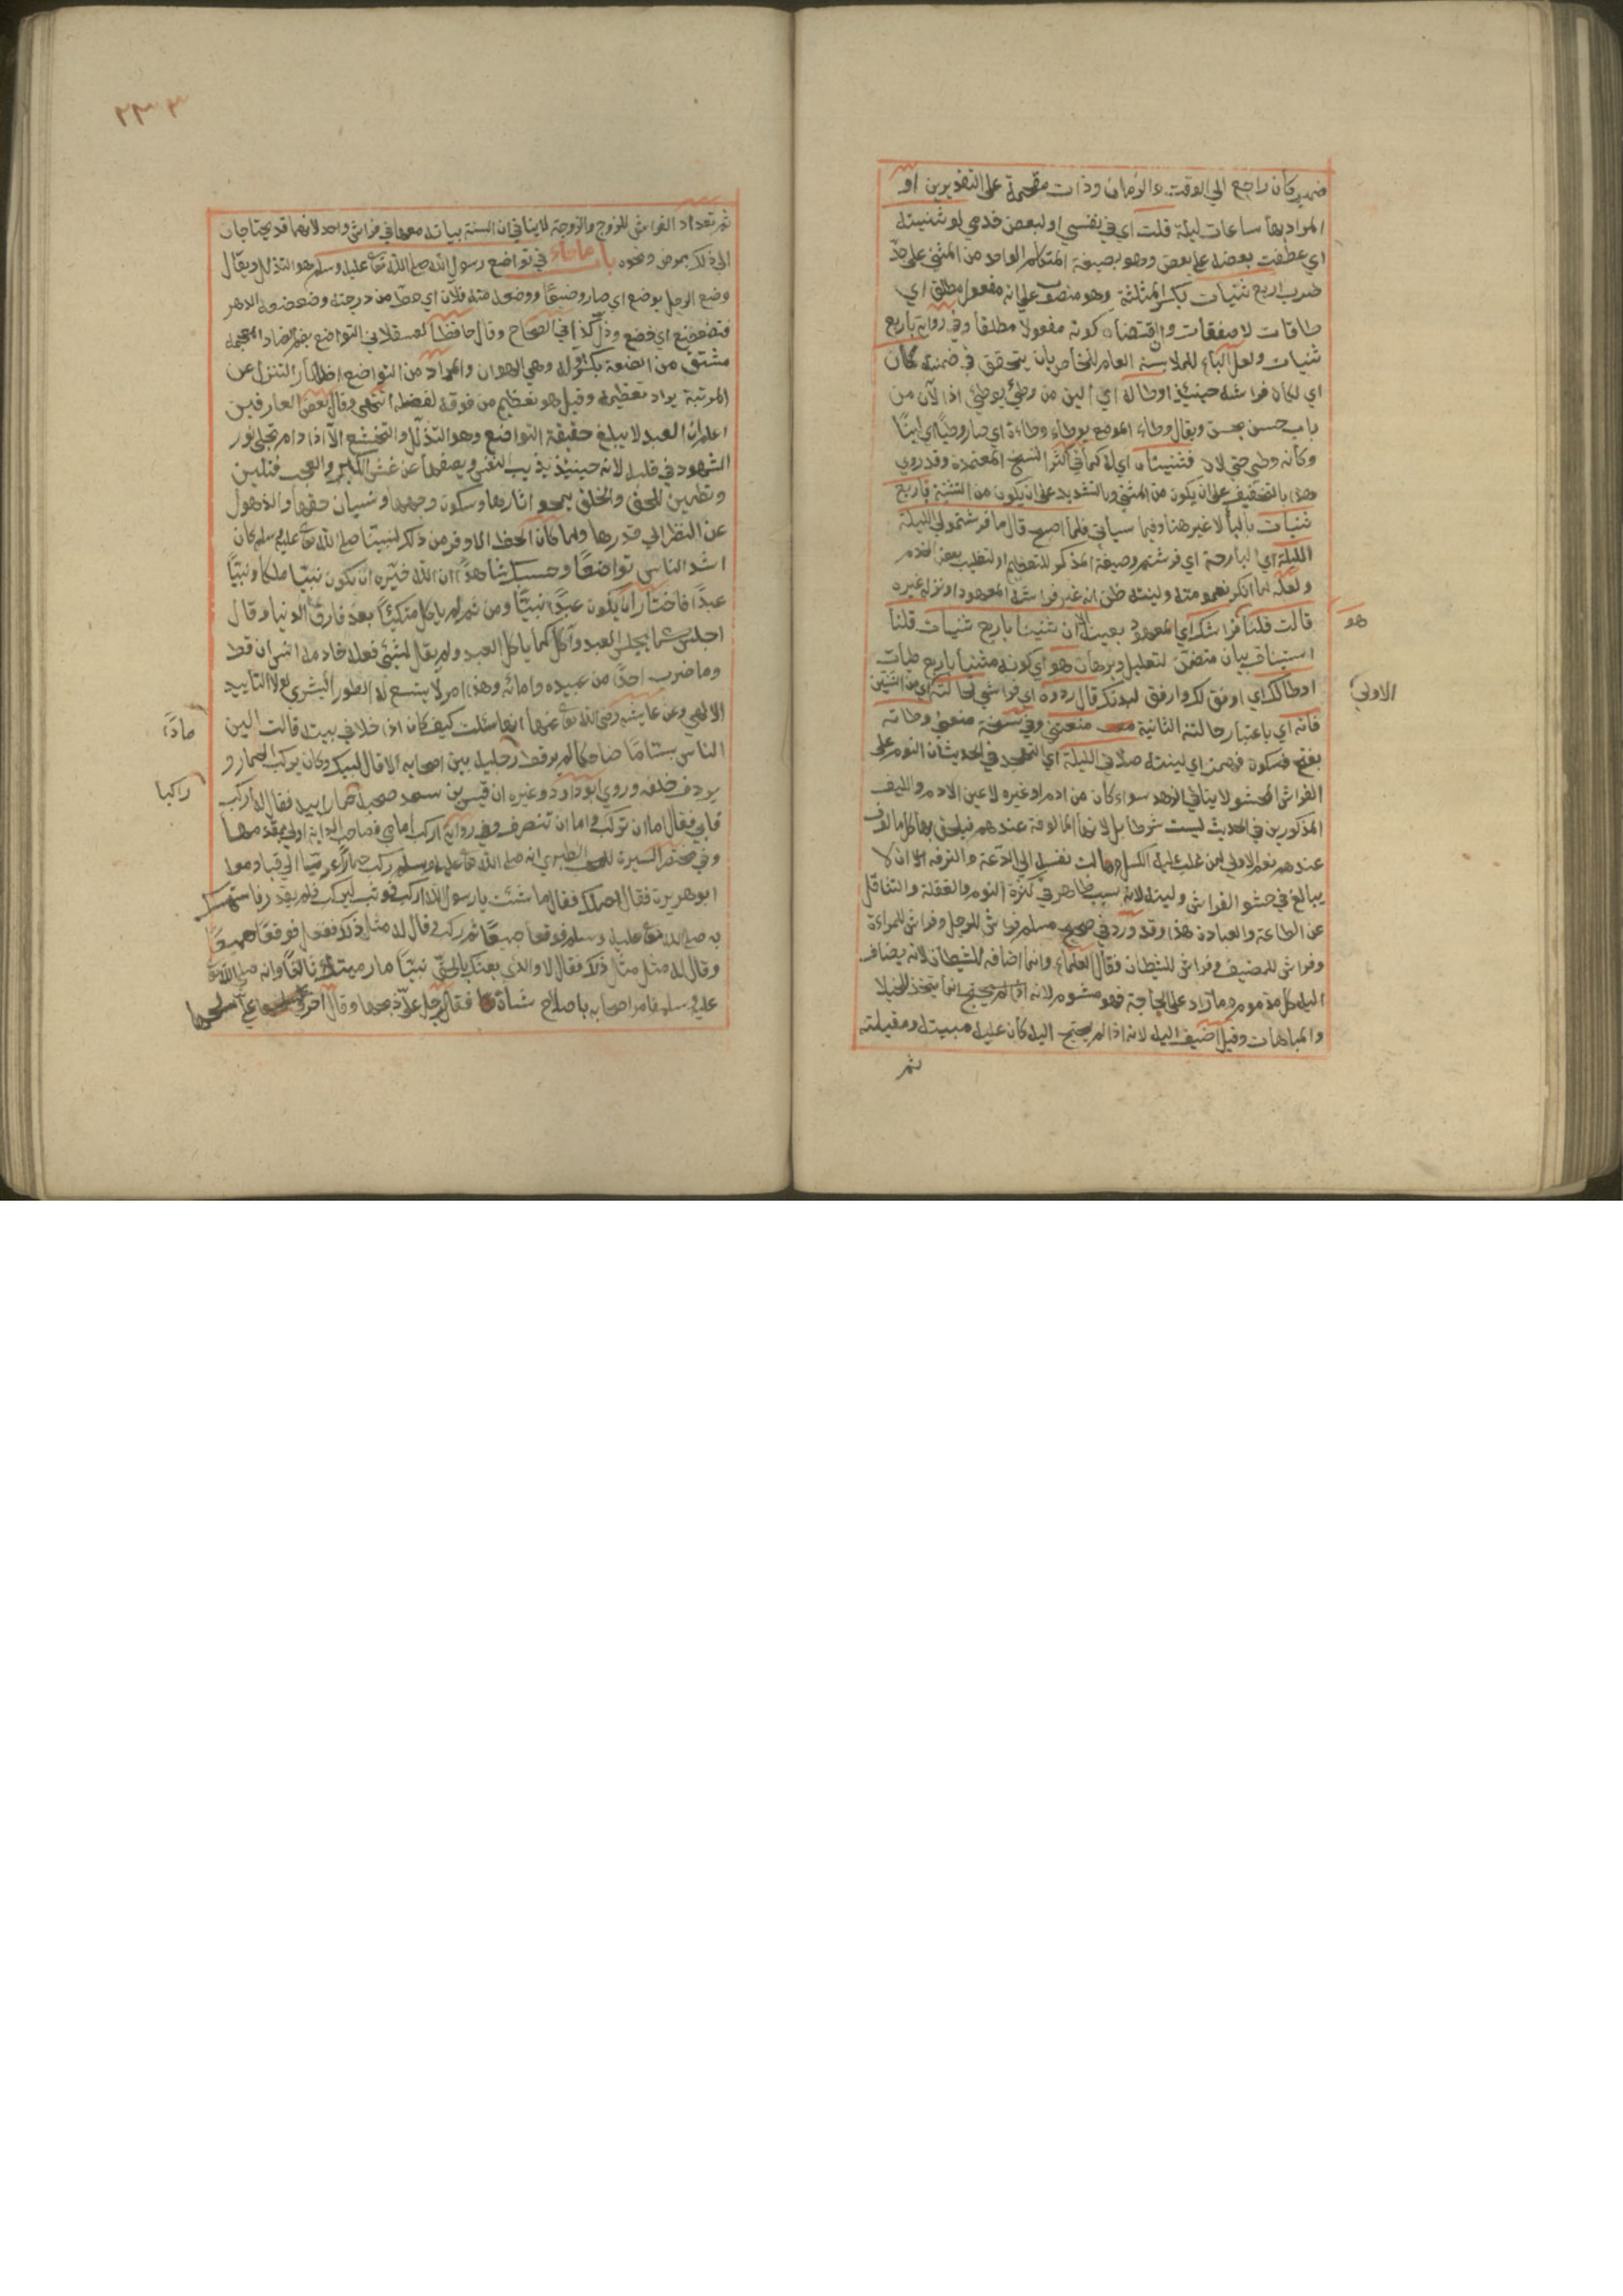 ضمير كان راجع الي الوقت والزمان وذات مقحمة على التقديرين او
المراد بها ساعات ليلة قلت اي في نفسي او لبعض خدمي لو ثنيته
اي عطفت بعضه على بعض وهو بصيغة المتكلم الواحد من الثني على حد
ضرب اربع ثنيات بكسر المثلثة وهو منصوب على انه مفعول مطلق اي
طاقات لا صفقات و كونه مفعولا مطلقا وفي رواية باربع
ثنيات ولعل الباء للملابسة العام للخاص بان يتحقق في ضمنه كان
اي لكان فراشه حينئذ اوطا له اي الين من وطئ يوطئ اذ الآن من
باب حسن يحسن ويقال وطاء الموضع يوطاء وطاءة اي صار وطيا اي لينا
وكانه وطي حتى لان فثنيناه اي له كما في اكثر النسخ المعتمدة وقد روي
وهذا بالتخفيف على ان يكون من الثني وبالتشديد على ان يكون من التثنية باربع
ثنيات بالباء لا غير هنا وفيما سياتي فلما اصبح قال ما فرشتمو لي الليلة
الليلة اي البارحة اي فرشتم وصيغة المذكر للتعظيم او لتغليب بعض الخدم
ولعله لما انكر نعومته ولينته ظن انه غير فراشه المعهود او نزله غيره
قالت قلنا فراشك اي المعهود بعينه الا ان ثنيناه باربع ثنيات قلنا
هو
استيناف بيان متضمن لتعليل وبرهان هو اي كونه مثنيا باربع طبات
اوطا لك اي اوفق لك وارفق لبدنك قال ردوه اي فراشي لحالته اي من الثنتين
الاولى
فانه اي باعتبار حالته الثانية منعتني وفي نسخة منعني وطاته
بفتح فسكون فهمز اي لينته صلاتي الليلة اي التهجد في الحديث ان النوم على
الفراش المحشو لا ينافي الزهد سواء كان من ادم او غيره لا عين الادم والليف
المذكورين في الحديث ليست شرطا بل لانها المالوفة عندهم فيلحق بها كل مالوف
عندهم نعم الاولى لمن غلب عليه الكسل ومالت نفسه الى الدعة والترفه الا ان لا
يبالغ في حشو الفراش ولينه لانه سبب ظاهر في كثرة النوم والغفلة والتثاقل
عن الطاعة والعبادة هذا وقد ورد في صحيح مسلم فراش للرجل وفراش للمراءة
وفراش للضيف وفراش للشيطان فقال العلماء وانما اضافه للشيطان لانه يضاف
اليه كل مذموم وما زاد على الحاجة فهو مشوم لانه انما يتخذ للخيلا
والمباهات وقيل اضيف اليه لانه اذا لم يحتج اليه كان عليه مبيته ومقيلته
ثم
٢٣٣
ثم تعداد الفراش للزوج والزوجة لا ينافي ان السنة بياته معها في فراش واحد لانهما قد يحتاجان
الى ذلك بمرض ونحوه باب ما جاء في تواضع رسول الله صلى الله تعالى عليه وسلم هو التذلل ويقال
وضع الرجل يوضع اي صار وضيعا ووضع منه فلان اي حط من درجته وضعضعه الدهر
فتضعضع اي خضع وذل كذا في الصحاح وقال حافظ العسقلاني التواضع بضم الضاد المعجمة
مشتق من الضعة بكسر اوله وهي الهوان والمراد من التواضع اظهار التنزل عن
المرتبة يراد تعظيمه وقيل هو تعظيم من فوقه لفضله انتهى وقال بعض العارفين
اعلم ان العبد لا يبلغ حقيقة التواضع وهو التذلل والتخشع الا اذا دام تجلي نور
الشهود في قلبه لانه حينئذ يذيب النفس ويصفيها عن غش الكبر والعجب فتلين
وتطمين للحق والخلق بمحو اثارها وسكون وهجها ونسيان حقها والذهول
عن النظر الى قدرها ولما كان الحظ الاوفر من ذلك لنبينا صلى الله تعالى عليه وسلم كان
اشد الناس تواضعا وحسبك شاهدا ان الله خيره ان يكون نبيا ملكا او نبيا
عبدا فاختار ان يكون عبدا نبيا ومن ثم لم ياكل متكئا بعد فارق الدنيا وقال
اجلس كما يجلس العبد وآكل كما ياكل العبد ولم يقل لشيئ فعله خادمه انس اف قط
وما ضرب احدا من عبيده وامائه وهذا امر لا يتسع له الطور البشري لولا التاييد
الالهي وعن عايشة رضي الله تعالى عنها انها سئلت كيف كان اذا خلا في بيته قالت الين
الناس بساما ضاحكا لم ير قط رجليه بين اصحابه الا قال لبيك وكان يركب الحمار و
مادا
يردف خلفه وروي ابو داود وغيره ان قيس بن سعد صحبه حمار ابيه فقال له اركب
راكبا
فابي فقال اما ان تركب واما ان تنصرف وفي رواية اركب امامي فصاحب الدابة اولى بمقدمها
وفي مختصر السيرة للمحب الطبري انه صلى الله تعالى عليه وسلم ركب حمارا عريا الى قبا ومعه
ابو هريرة فقال احملك فقال ما شئت يا رسول الله اركب فوثب ليركب فلم يقدر فاستمسك
به صلى الله تعالى عليه وسلم فوقعا جميعا ثم ركب وقال له مثل ذلك ففعل فوقعا جميعا
وقال له مثل مثل ذلك فقال لا والذي بعثك بالحق نبيا ما رميتك ثالثا وانه صلى الله تعالى
عليه وسلم فامر اصحابه باصلاح شاة فقال رجل علي ذبحها وقال آخر علي سلخها